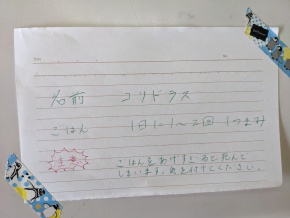 名前 コリドラス
ごはん 1日に1〜2回 1つまみ
注意 ごはんをあげすぎると死んで
しまいます。気を付けてください。